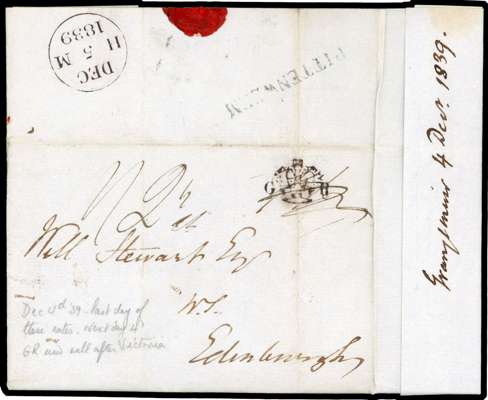 DEC
H 5 M
1839
PITTENWEEM
Grangemuir 4 Decr. 1839.
G R
Will Stewart Esqr
W.S.
Edinburgh
Dec 4th '39 - last day of
these rates. next day is
GR and well after Victoria